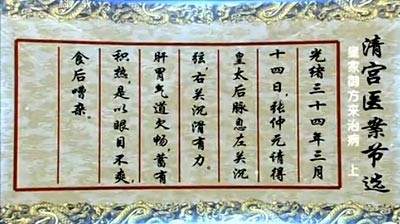 清宫医案节选
皇家御方来治病 上
光绪三十四年三月
十四日，张仲元请得
皇太后脉息左关沉
弦右关沉滑有力。
肝胃气道欠畅，蓄有
积热，是以眼目不爽，
食后嘈杂。